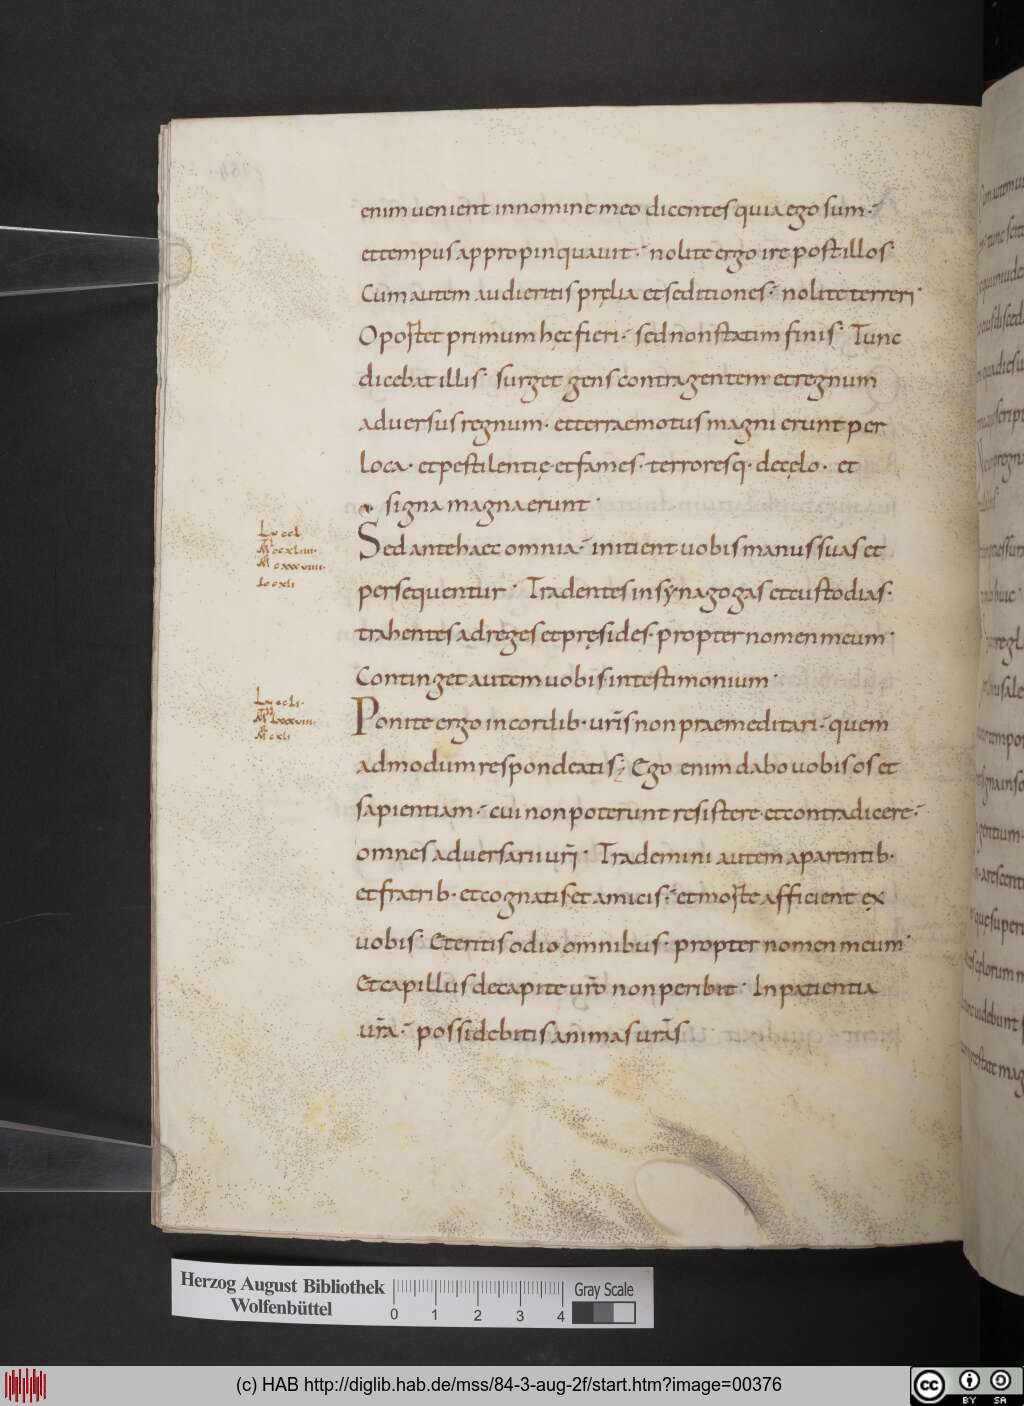 enim uenient innomine meo dicentes quia ego sum·
ettempus appropinquauit· nolite ergo ire postillos·
Cum autem audieritis pręlia et seditiones· nolite terreri·
Oportet primum hęc fieri· sed non statim finis· Tunc
dicebat illis· surget gens contra gentem· et regnum
aduersus regnum· et terraemotus magni erunt per
loca· et pestilentię· et fames· terroresq· de cęlo· et
signa magna erunt·
Sed ante haec omnia· initient uobis manus suas et
persequentur· Tradentes in synagogas et custodias·
trahentes ad reges et pręsides· propter nomen meum·
Continget autem uobis in testimonium·
Ponite ergo in cordib· ur̄is non praemeditari· quem
admodum respondeatis; Ego enim dabo uobis os et
sapientiam· cui non poterunt resistere et contradicere·
omnes aduersarii ur̄i· Trademini autem a parentib·
et fratrib· et cognatis· et amicis· et morte afficient ex
uobis· Et eritis odio omnibus· propter nomen meum·
Et capillus de capite ur̄o non peribit· In patientia
ur̄a· possidebitis animas ur̄as
Lu ccl
Mr cxxxviiii·
Io cxli
Lu ccli·
Herzog August Bibliothek
Wolfenbüttel
0 1 2 3 4
Gray Scale
(c) HAB http://diglib.hab.de/mss/84-3-aug-2f/start.htm?image=00376
cc BY SA